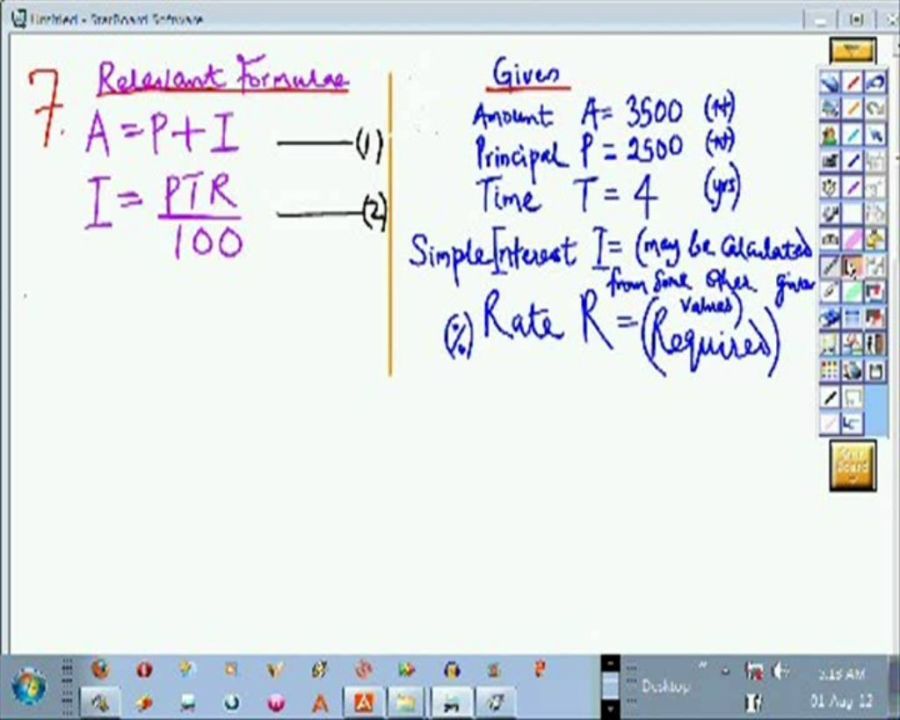 Untitled - StarBoard Software
7.
Relevant Formulae
A = P + I (1)
I = PTR (2)
100
Given
Amount A = 3500
Principal P = 2500
Time T = 4 (yrs)
Simple Interest I = (may be Calculated
from some other given
values)
(%) Rate R = (Required)
Desktop
5:18 AM
01 Aug 12